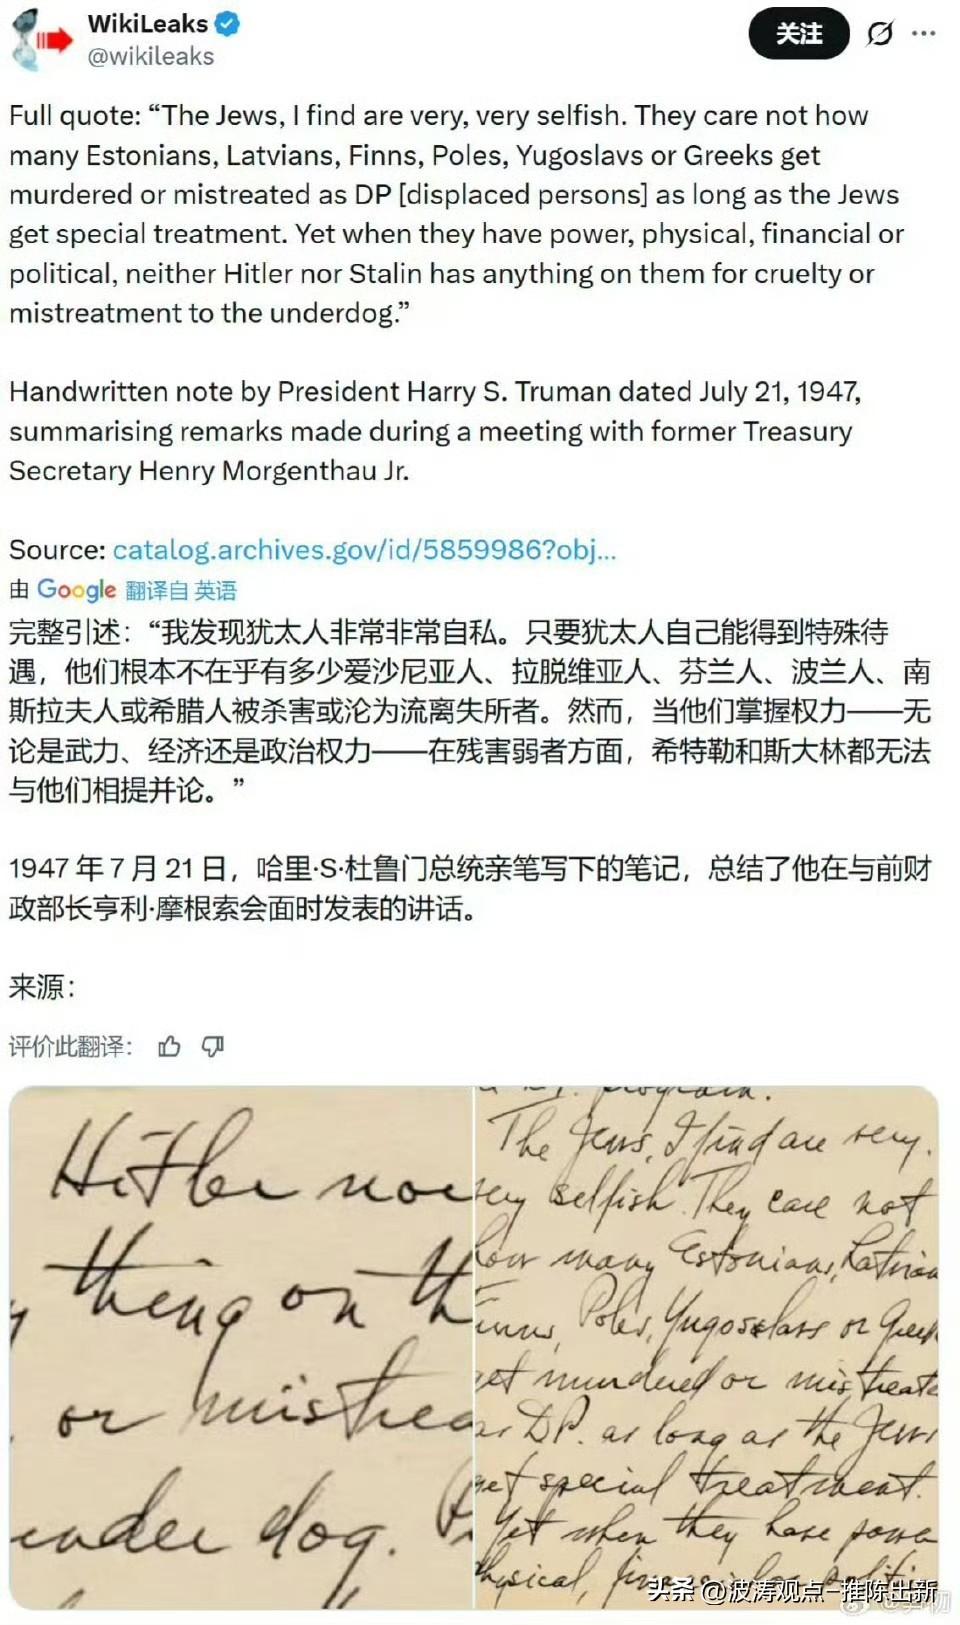 WikiLeaks
关注
@wikileaks
Full quote: “The Jews, I find are very, very selfish. They care not how
many Estonians, Latvians, Finns, Poles, Yugoslavs or Greeks get
murdered or mistreated as DP [displaced persons] as long as the Jews
get special treatment. Yet when they have power, physical, financial or
political, neither Hitler nor Stalin has anything on them for cruelty or
mistreatment to the underdog.”
Handwritten note by President Harry S. Truman dated July 21, 1947,
summarising remarks made during a meeting with former Treasury
Secretary Henry Morgenthau Jr.
Source: catalog.archives.gov/id/5859986?obj...
由 Google 翻译自 英语
完整引述：“我发现犹太人非常非常自私。只要犹太人自己能得到特殊待
遇，他们根本不在乎有多少爱沙尼亚人、拉脱维亚人、芬兰人、波兰人、南
斯拉夫人或希腊人被杀害或沦为流离失所者。然而，当他们掌握权力——无
论是武力、经济还是政治权力——在残害弱者方面，希特勒和斯大林都无法
与他们相提并论。”
1947 年 7 月 21 日，哈里·S·杜鲁门总统亲笔写下的笔记，总结了他在与前财
政部长亨利·摩根索会面时发表的讲话。
来源：
评价此翻译：
Hitler nor
thing on th
or mistrea
under dog.
program.
The Jews, I find are very,
very selfish. They care not
how many Estonians, Latvian
Finns, Poles, Yugoslavs or Greek
get murdered or mistreate
as DP. as long as the Jews
get special treatment.
Yet when they have powe
physical, financial or politi
头条 @波涛观点-推陈出新